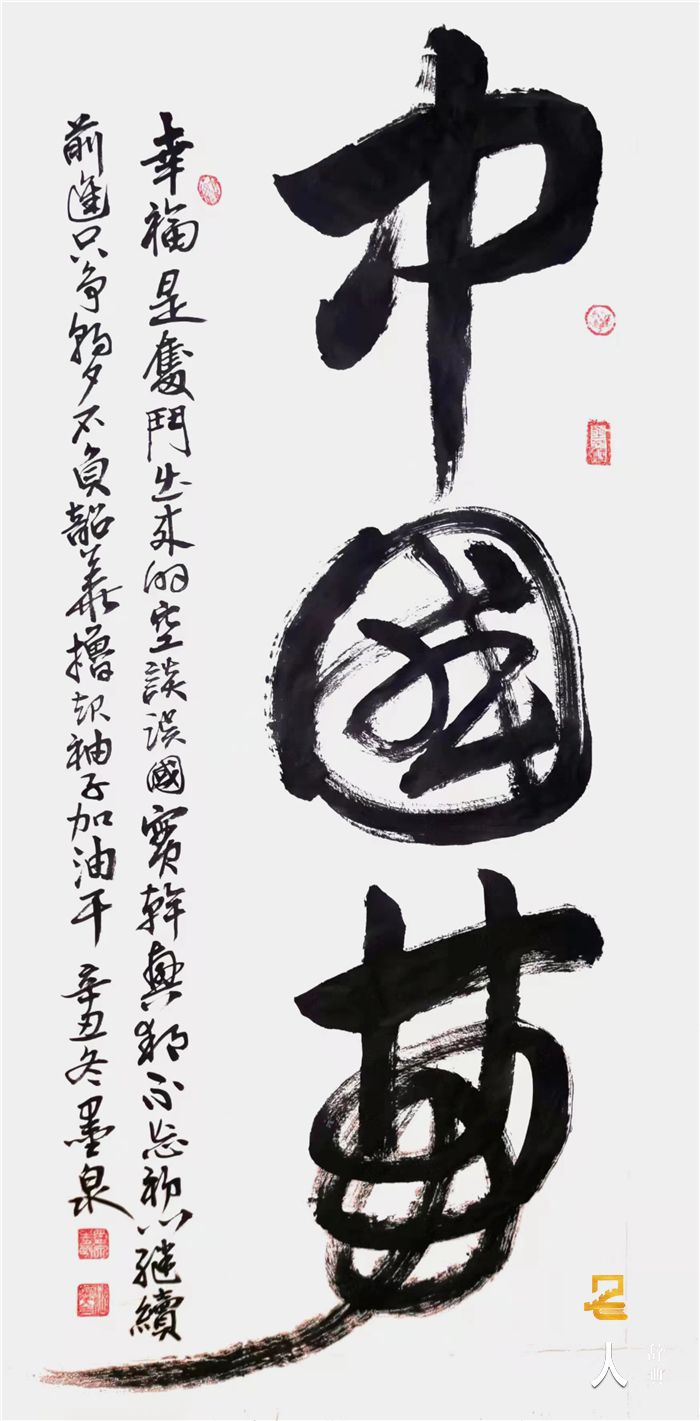 中國夢
幸福是奮鬥出来的空談误國實幹興邦不忘初心繼續
前進只争朝夕不負韶華擼起袖子加油干 辛丑冬墨泉
名人
辞典